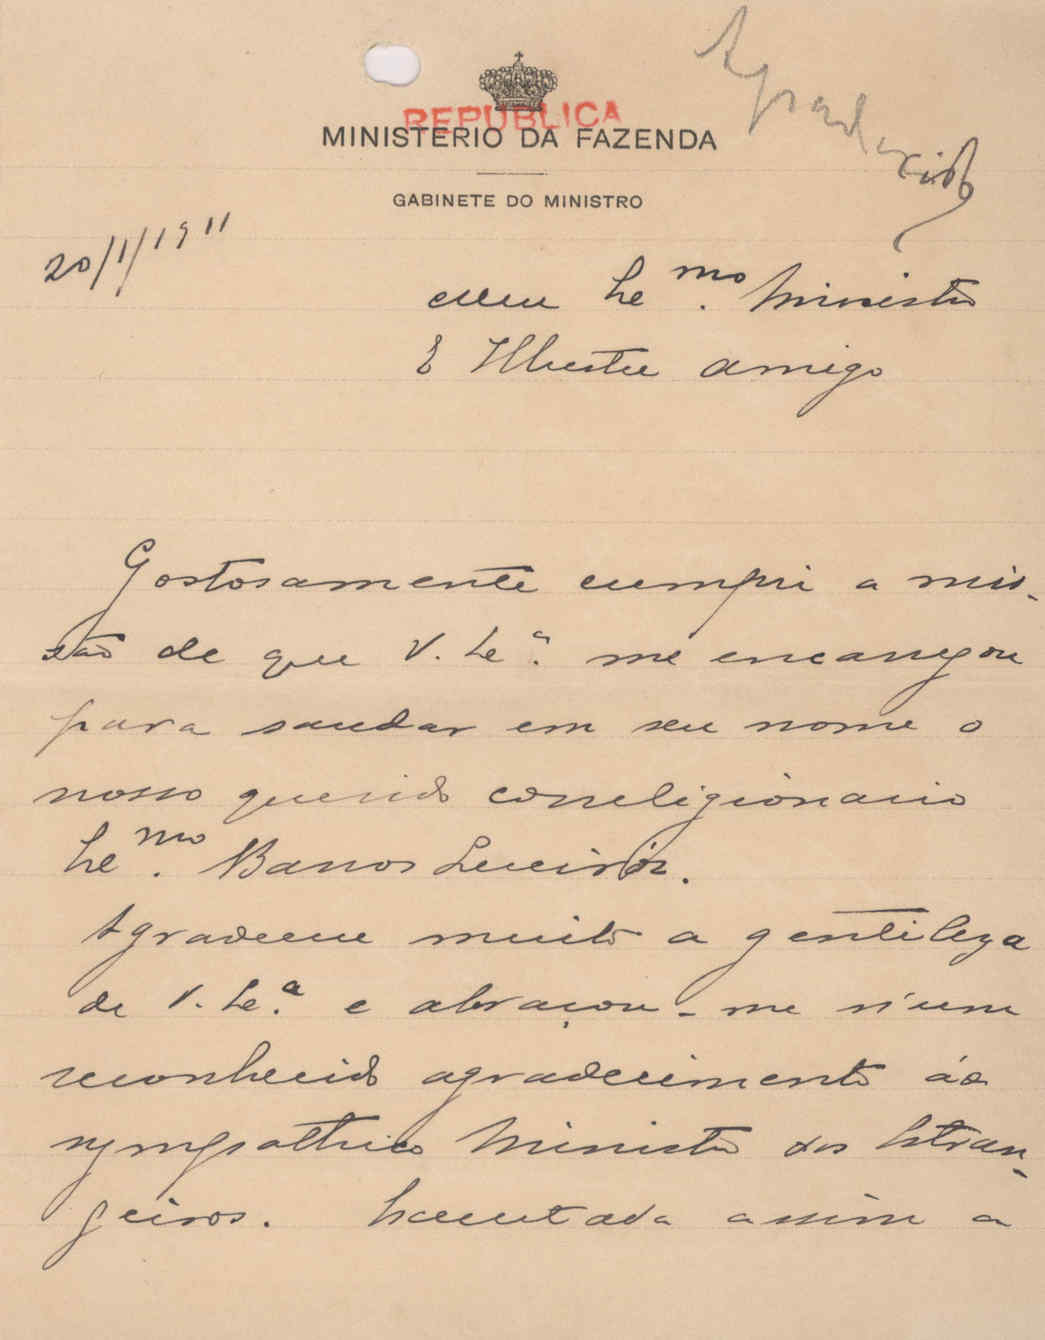 Agradecido
REPUBLICA
MINISTERIO DA FAZENDA
GABINETE DO MINISTRO
20/1/1911
Meu Ex.mo Ministro
E Illustre Amigo
Gostosamente cumpri a mis-
são de que V. Ex.a me encarregou
para saudar em seu nome o
nosso querido correligionario
Ex.mo Barros Queiroz.
Agradeceu muito a gentileza
de V. Ex.a e abraçou-me n'um
reconhecido agradecimento ao
sympathico Ministro dos Estran-
geiros. Executada assim a